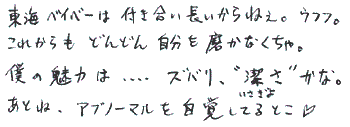 東海ベイベーは付き合い長いからねぇ。ウフフ。
これからもどんどん自分を磨かなくちゃ。
僕の魅力は‥‥ズバリ、"潔さ"かな。
いさぎよ
あとね、アブノーマルを自覚してるとこ♡